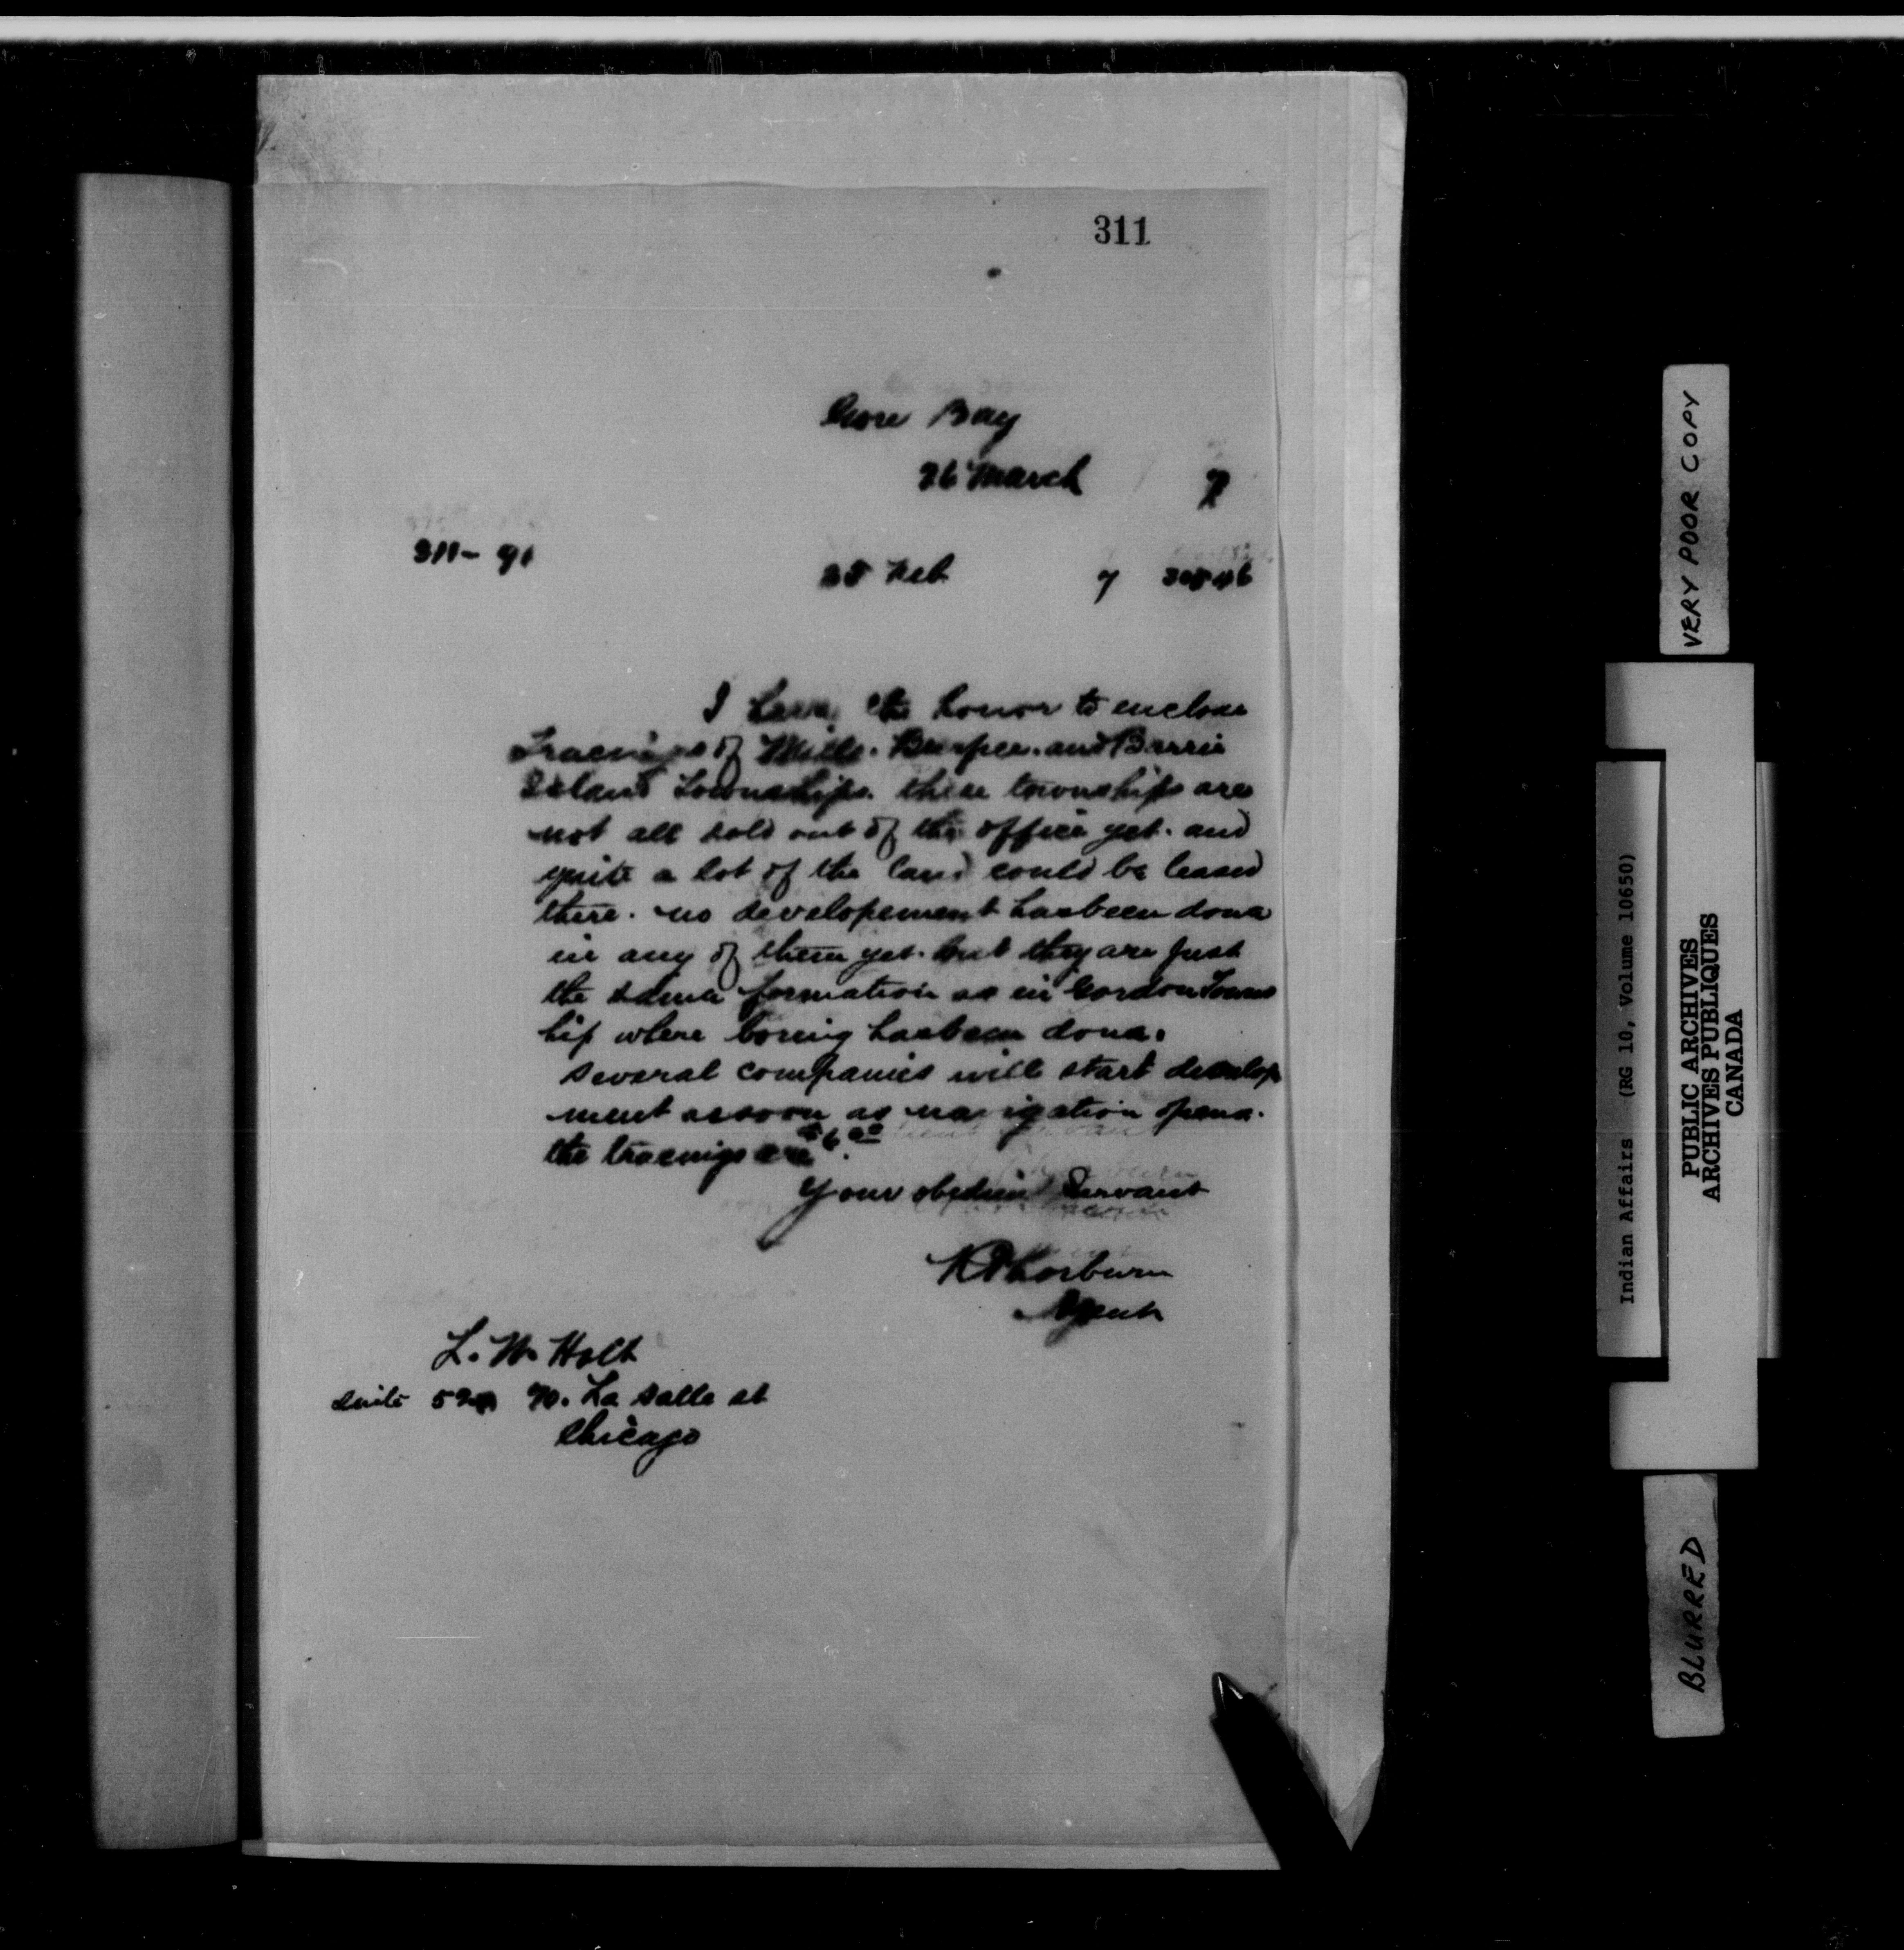 311
Gore Bay
26 March 7
311- 91
28 Feb 7
I have the honor to enclose
Tracings of Mills. Burpee. and Barrie
Island Townships. these townships are
not all sold out of this office yet. and
quite a lot of the land could be leased
there. no developement has been done
in any of them yet. but they are just
the same formation as in Gordon Towns
hip where boring has been done.
several companies will start develop
ment as soon as navigation opens.
the tracings are $6.00
Your obedient Servant
Thorburn
Agent
L. W. Holt
suite La Salle st
Chicago
VERY POOR COPY
Indian Affairs (RG 10, Volume 10650)
PUBLIC ARCHIVES
ARCHIVES PUBLIQUES
CANADA
BLURRED